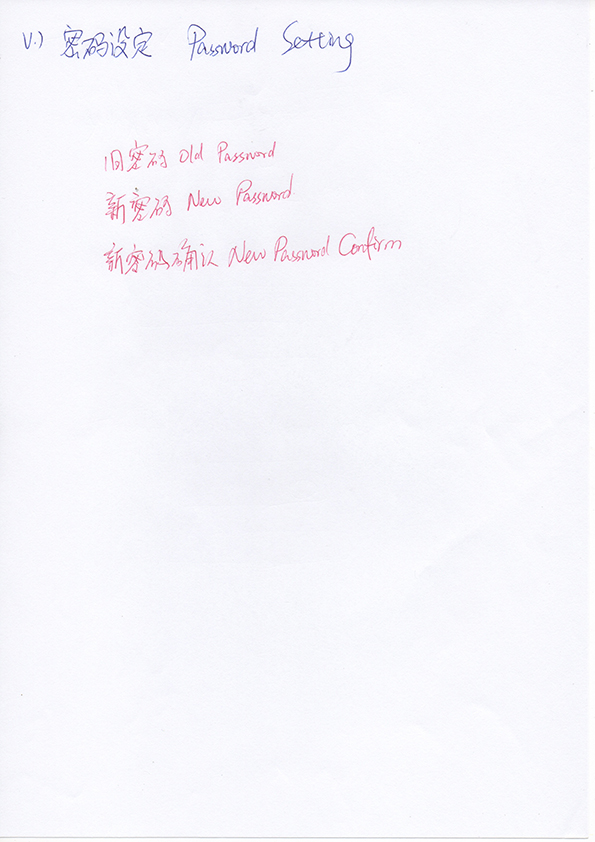 V.) 密码设定 Password Setting
旧密码 Old Password
新密码 New Password
新密码确认 New Password Confirm